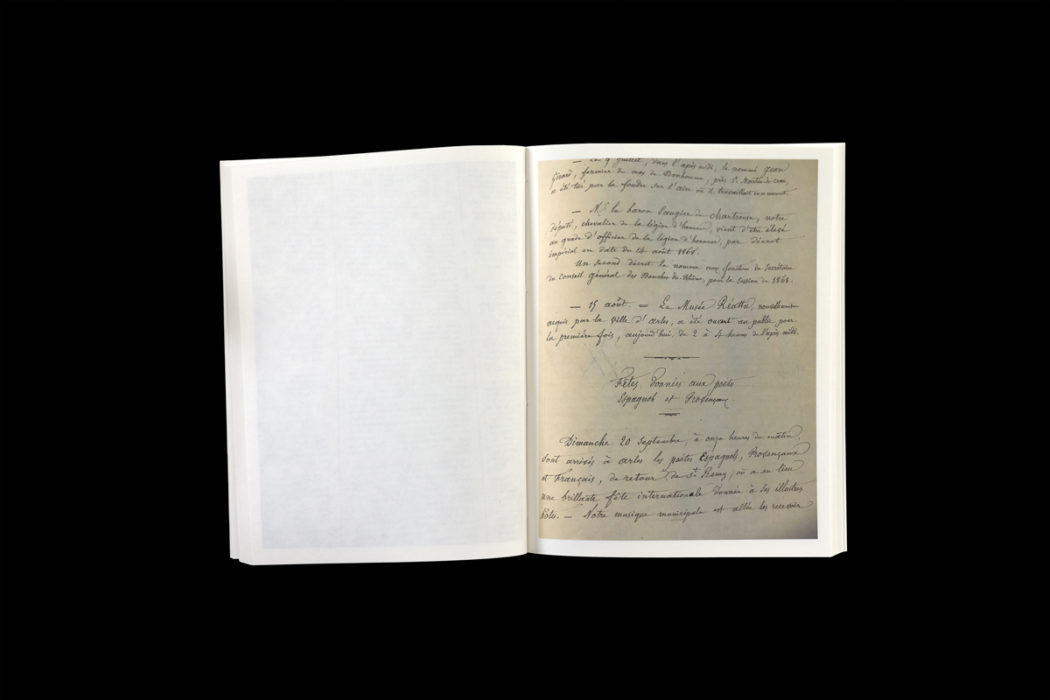 — Le 9 juillet, dans l'après midi, le nommé Jean
Girard, fermier du mas de Bonhomme, près St Martin de crau,
a été tué par la foudre sur l'aire où il travaillait
— Mr le baron Laugier de Chartrouse, notre
député, chevalier de la légion d'honneur, vient d'être élevé
au grade d'officier de la légion d'honneur, par décret
impérial en date du 14 août 1868.
Un second décret le nomme aux fonctions de Secrétaire
du Conseil général des Bouches du Rhône, pour la session de 1868.
— 15 août. — Le Musée Réattu, nouvellement
acquis par la ville d'arles, a été ouvert au public pour
la première fois, aujourd'hui, de 2 à 4 heures de l'après midi.
Fêtes données aux poëtes
Espagnols et Provençaux
Dimanche 20 septembre, à onze heures du matin,
sont arrivés à arles les poëtes Espagnols, Provençaux
et Français, de retour de St Remy, où a eu lieu
une brillante fête internationale donnée à ses illustres
hôtes. — Notre musique municipale est allée les recevoir